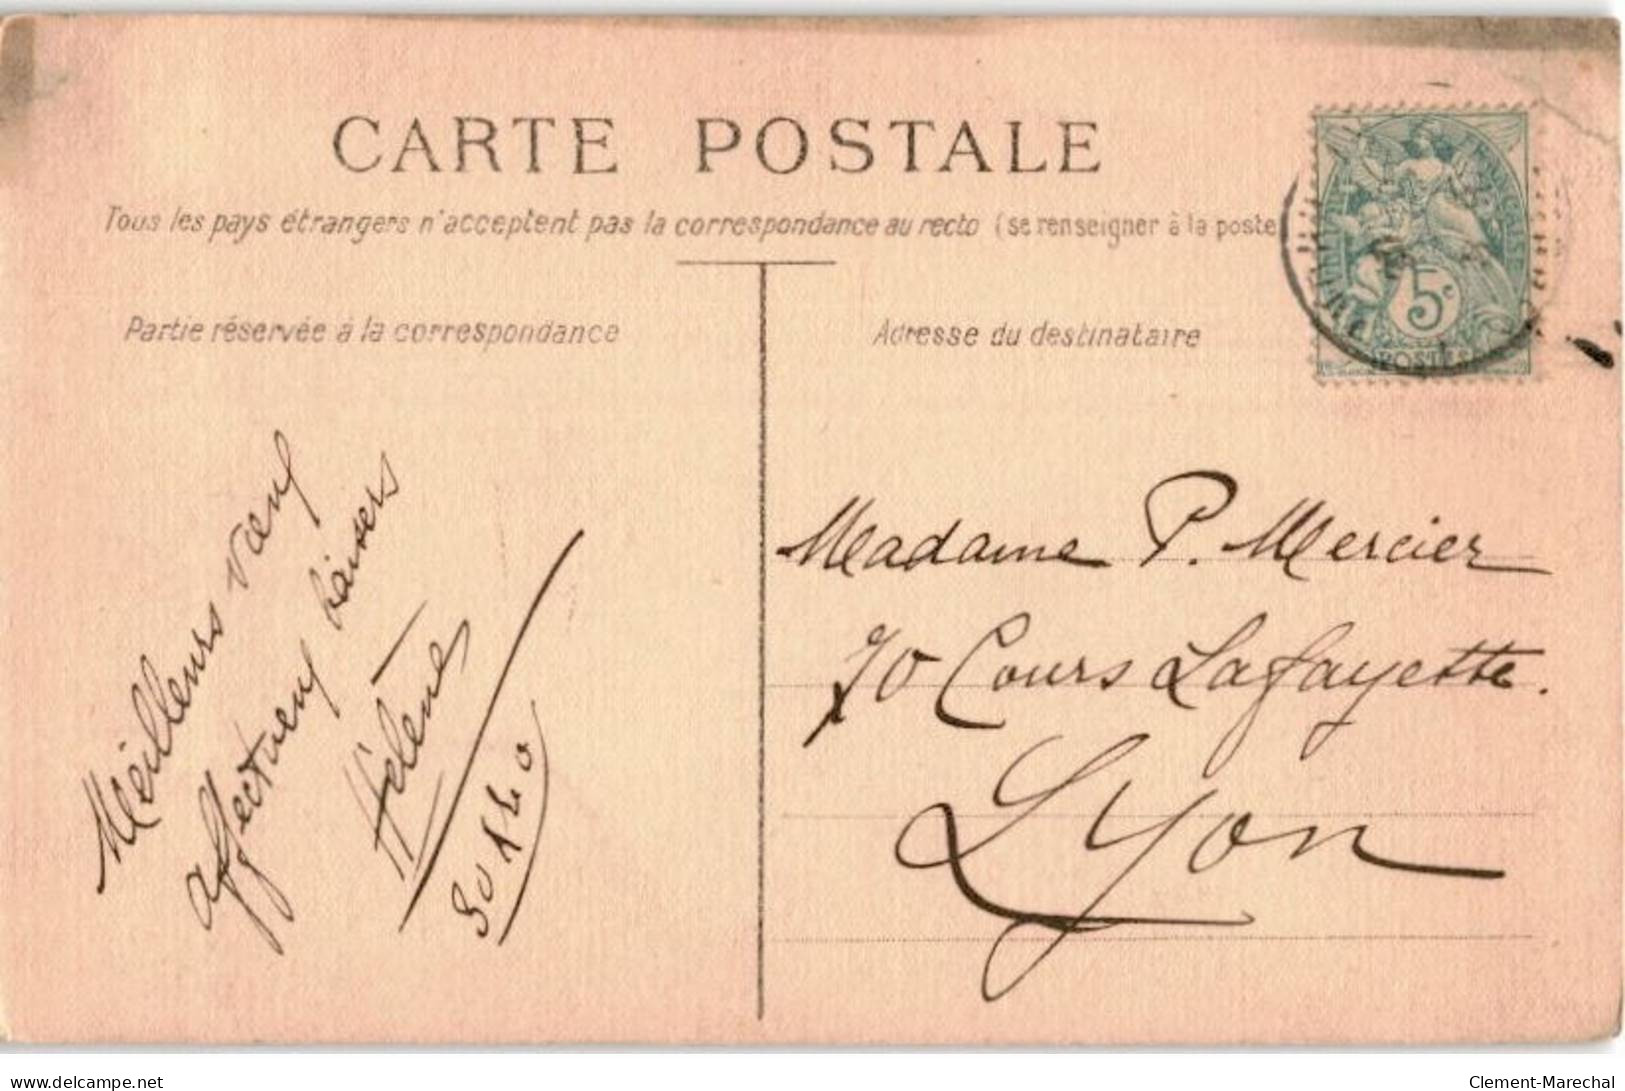 CARTE POSTALE
Tous les pays étrangers n'acceptent pas la correspondance au recto (se renseigner à la poste
Partie réservée à la correspondance
Adresse du destinataire
5c
POSTES
Meilleurs vœux
affectueux baisers
Hélène
Madame P. Mercier
70 Cours Lafayette.
Lyon
www.delcampe.net
Clement-Marechal